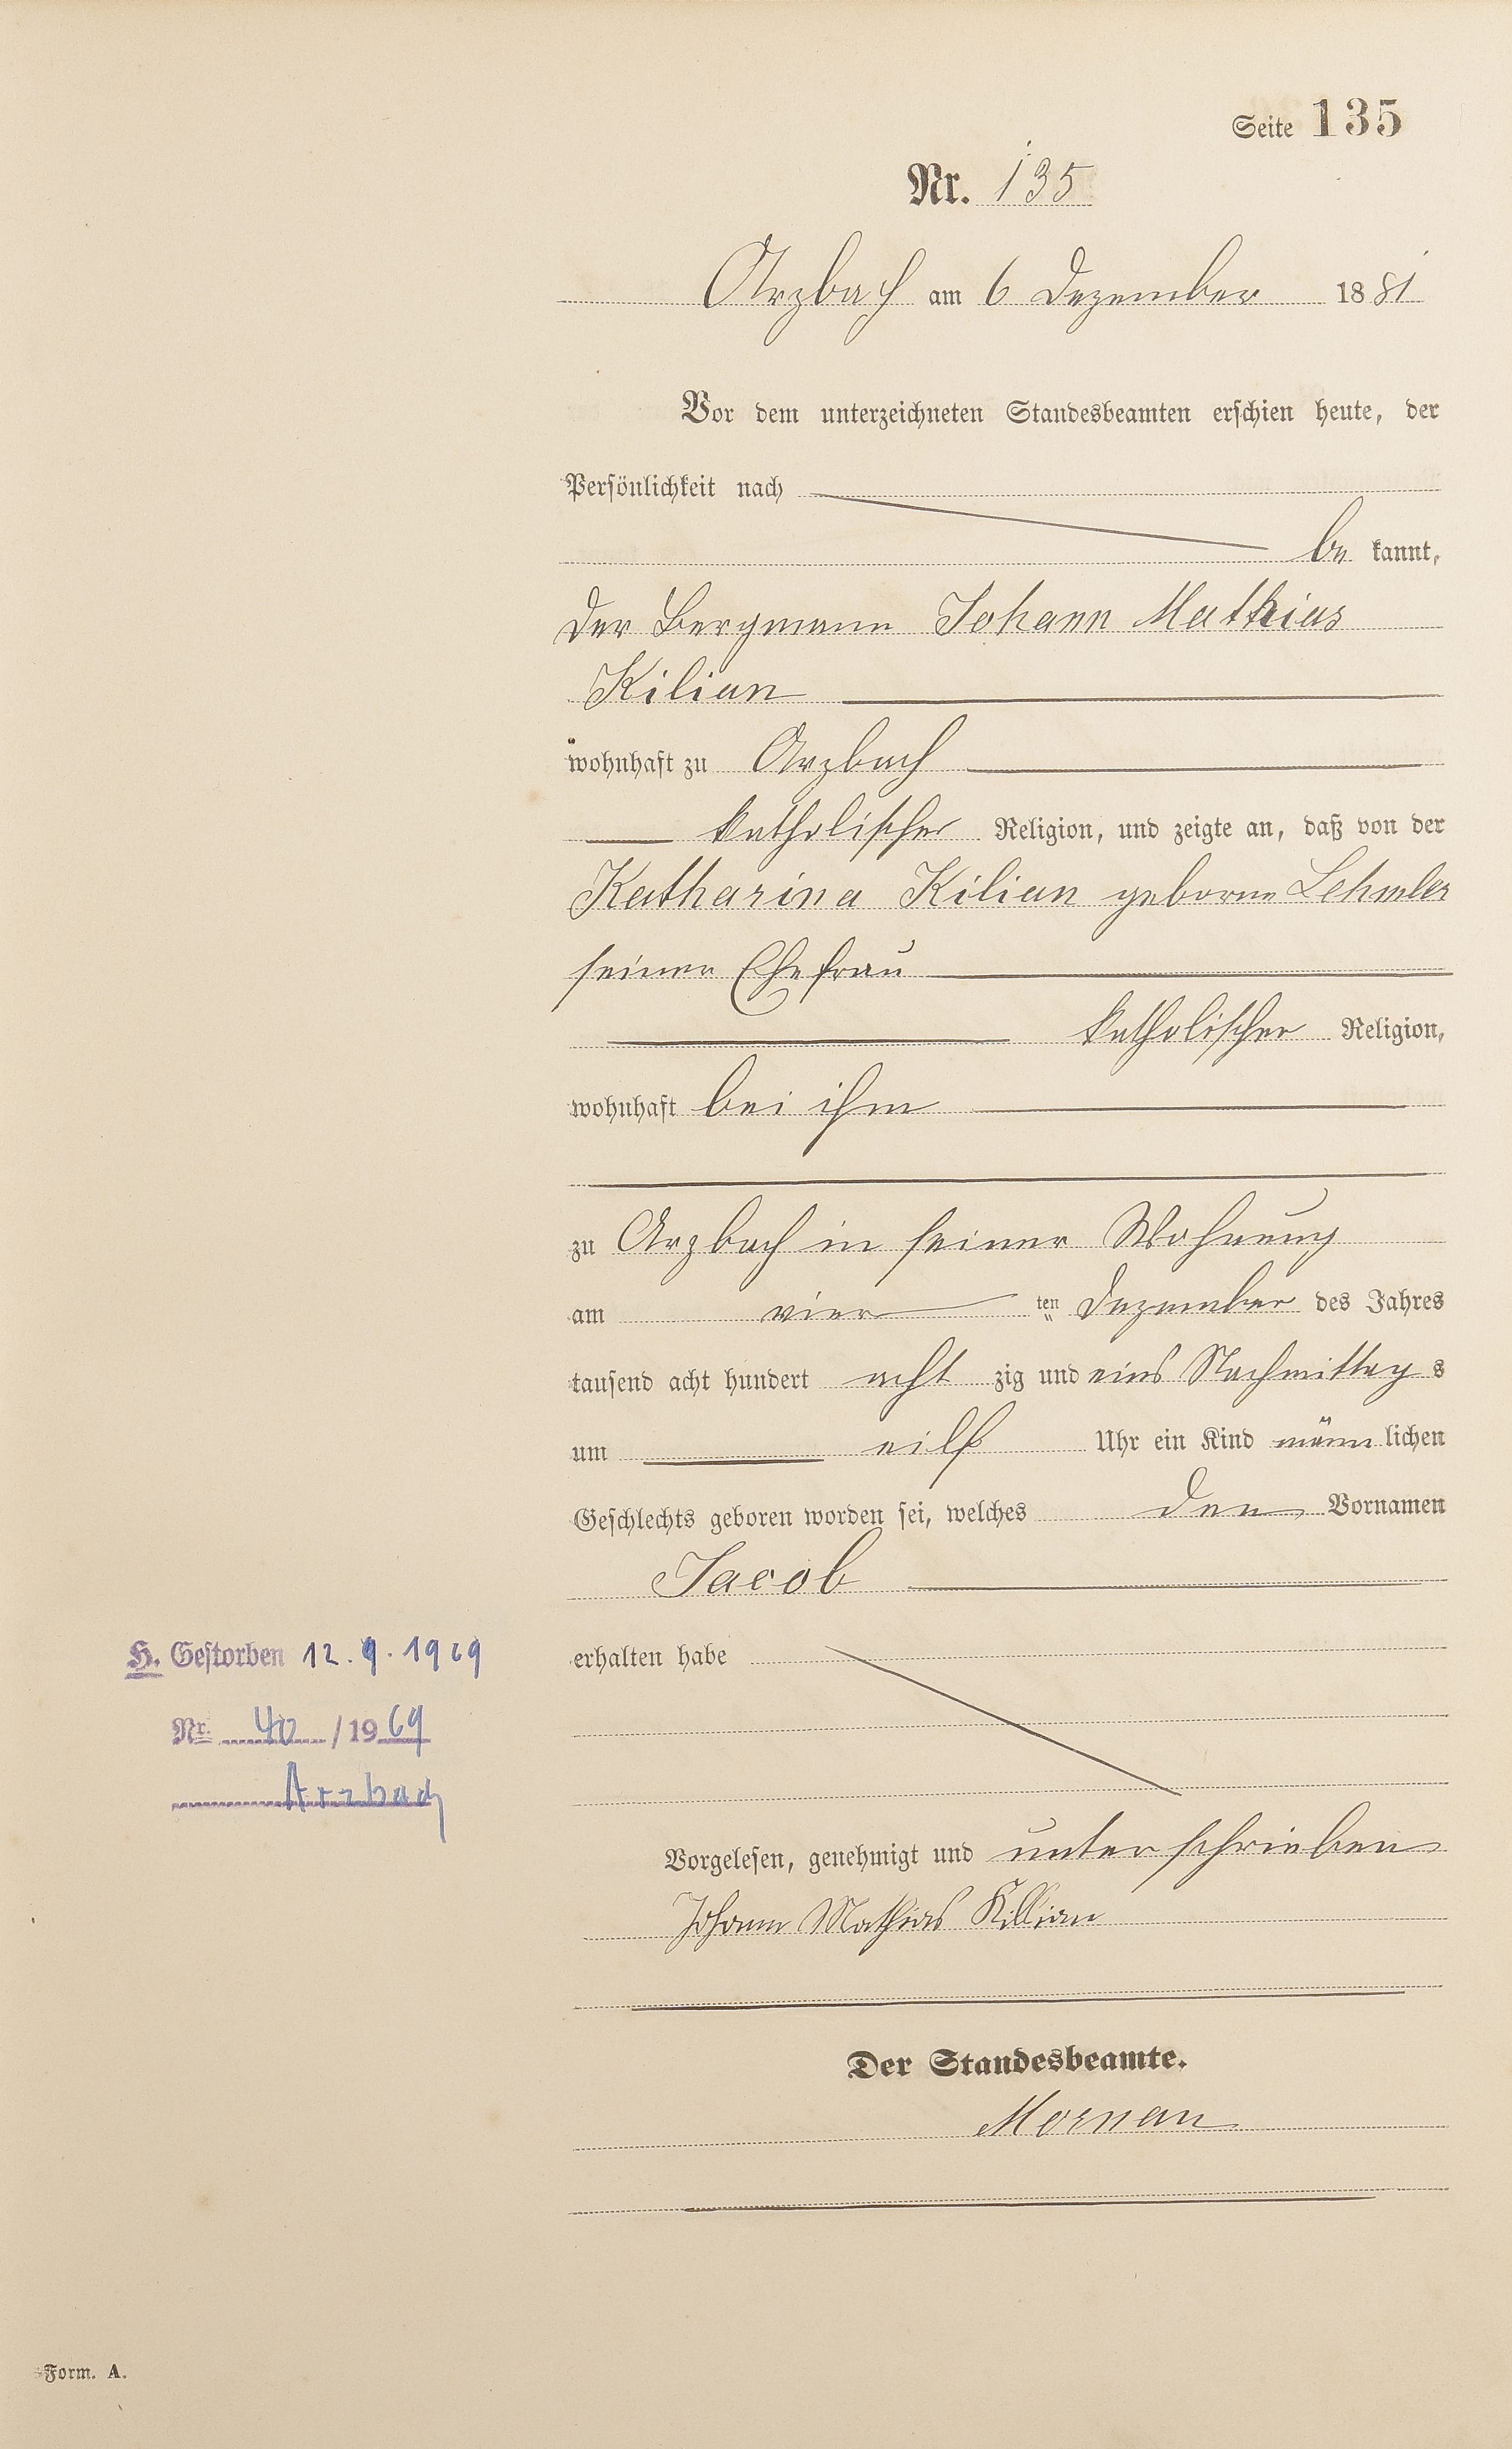 Seite 135
Nr. 135
Arzbach am 6 Dezember 1881
Vor dem unterzeichneten Standesbeamten erschien heute, der
Persönlichkeit nach
be kannt,
der Bergmann Johann Mathias
Kilian
wohnhaft zu Arzbach
katholischer Religion, und zeigte an, daß von der
Katharina Kilian geborne Lehmler
seiner Ehefrau
katholischer Religion,
wohnhaft bei ihm
zu Arzbach in seiner Wohnung
am vier ten Dezember des Jahres
tausend acht hundert acht zig und eins Nachmittag s
um eilf Uhr ein Kind männ lichen
Geschlechts geboren worden sei, welches den Vornamen
Jacob
erhalten habe
H. Gestorben 12. 9. 1969
Nr. 40 / 1969
Arzbach
Vorgelesen, genehmigt und unterschrieben
Johann Mathias Killian
Der Standesbeamte.
Mornau
Form. A.